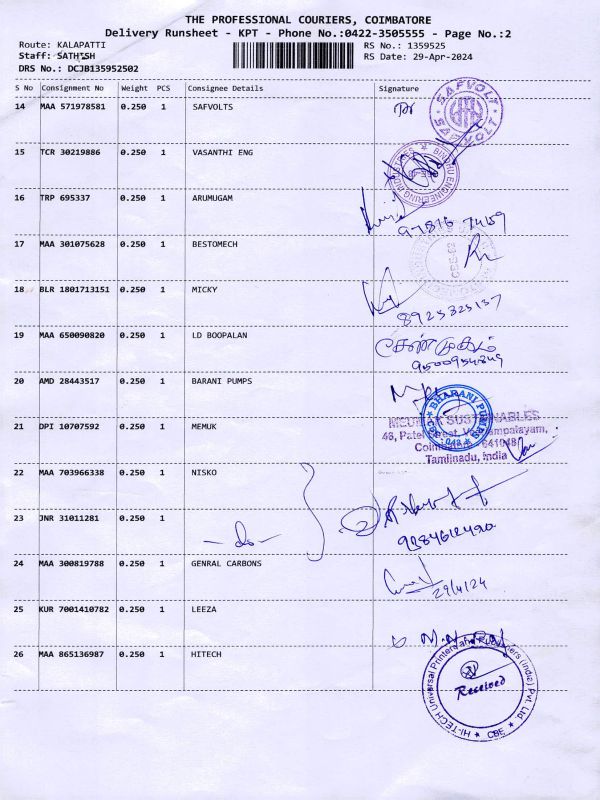 THE PROFESSIONAL COURIERS, COIMBATORE
Delivery Runsheet - KPT - Phone No.:0422-3505555 - Page No.:2
Route: KALAPATTI
Staff: SATHISH
DRS No.: DCJB135952502
RS No.: 1359525
RS Date: 29-Apr-2024
S No Consignment No Weight PCS Consignee Details Signature
14 MAA 571978581 0.250 1 SAFVOLTS
SAFVOLT SAFVOLT
15 TCR 30219886 0.250 1 VASANTHI ENG
16 TRP 695337 0.250 1 ARUMUGAM
97876 74159
17 MAA 301075628 0.250 1 BESTOMECH
18 BLR 1801713151 0.250 1 MICKY
8925325137
19 MAA 650090820 0.250 1 LD BOOPALAN
சண்முகம்
9500954849
20 AMD 28443517 0.250 1 BARANI PUMPS
BHARANI PUMPS
21 DPI 10707592 0.250 1 MEMUK
Tamilnadu, India
22 MAA 703966338 0.250 1 NISKO
23 JNR 31011281 0.250 1
-do-
24 MAA 300819788 0.250 1 GENRAL CARBONS
29/4/24
25 KUR 7001410782 0.250 1 LEEZA
26 MAA 865136987 0.250 1 HITECH
HI-TECH Universal Printers and Recoverers (India) Pvt. Ltd.
CBE
Received